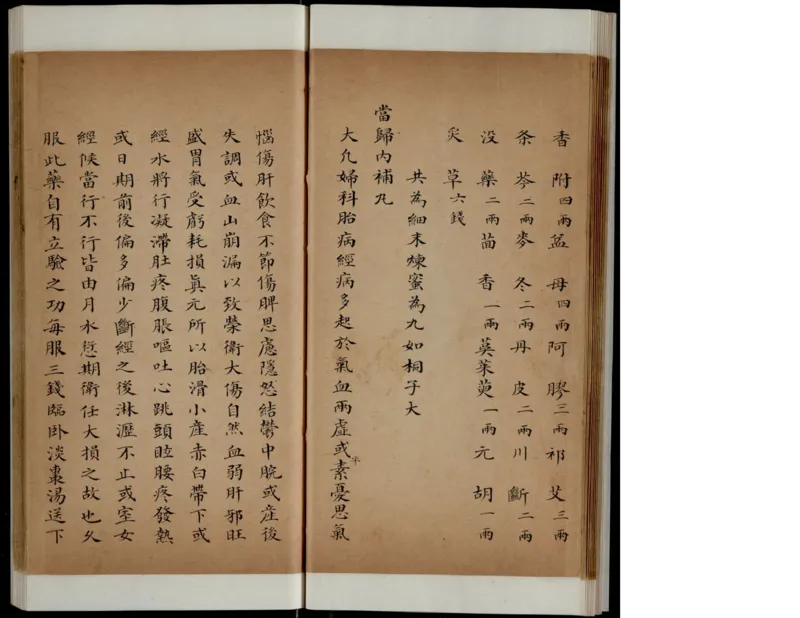 香附四兩益母四兩阿膠三兩祁艾三兩
条芩二兩麥冬二兩丹皮二兩川斷二兩
没藥二兩茴香一兩英茱萸一兩元胡一兩
炙草六錢
共為細末煉蜜為九如桐子大
當歸內補九
大凢婦科胎病經病多起於氣血兩虛或平素憂思氣
惱傷肝飲食不節傷脾思慮隱怒結鬱中脘或產後
失調或血山崩漏以致榮衛大傷自然血弱肝邪旺
盛胃氣受虧耗損真元所以胎滑小產赤白帶下或
經水將行凝滯肚疼腹脹嘔吐心跳頭眩腰疼發熱
或日期前後偏多偏少斷經之後淋瀝不止或室女
經候當行不行皆由月水愆期衛任大損之故也久
服此藥自有立驗之功每服三錢臨卧淡棗湯送下